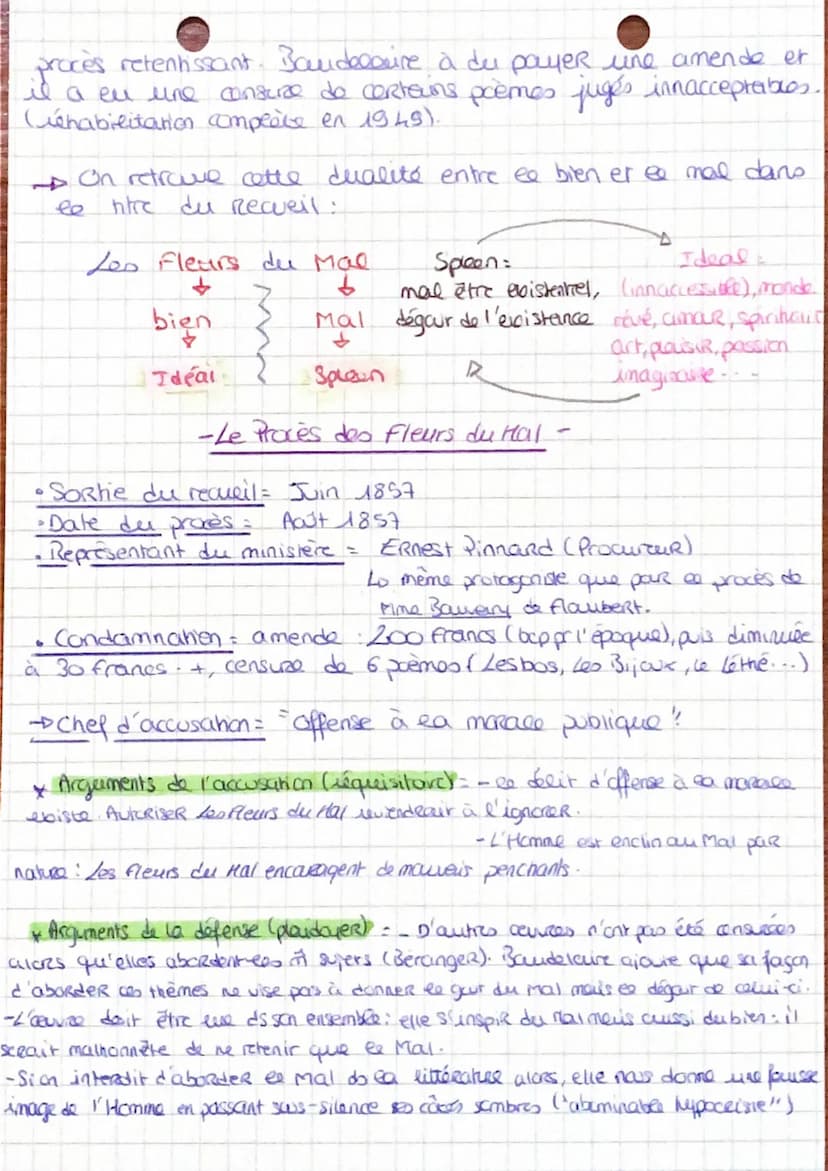 procès retentissant. Baudelaire à du payer une amende et
il a eu une censure de certains poèmes jugés innacceptables.
(réhabilitation complète en 1949).
→ On retrouve cette dualité entre le bien et le mal dans
le titre du Recueil :
Les Fleurs du Mal
bien Mal
Idéal Spleen
Spleen :
mal être existentiel,
dégout de l'existence
Ideal :
(innaccessible), monde
rêvé, amour, spiritualit
art, plaisir, passion
imaginaire...
- Le Procès des Fleurs du Mal -
• Sortie du recueil = Juin 1857
• Date du procès : Août 1857
• Représentant du ministère = Ernest Pinnard (Procureur)
Lo même protagoniste que pour le procès de
Mme Bauvary de Flaubert.
• Condamnation = amende : 200 francs (bcp pr l'époque), puis diminuée
à 30 francs. +, censure de 6 poèmes (Lesbos, Les Bijoux, le Léthé...)
→ Chef d'accusation = "offense à la morale publique".
* Arguments de l'accusation (réquisitoire) = - le délit d'offense à la morale
existe. Autoriser Les Fleurs du Mal reviendrait à l'ignorer.
- L'Homme est enclin au Mal par
nature : Les Fleurs du Mal encouragent de mauvais penchants.
* Arguments de la défense (plaidoyer) = - D'autres œuvres n'ont pas été censurées
alors qu'elles abordent les m̂ sujets (Béranger). Baudelaire ajoute que sa façon
d'aborder ces thèmes ne vise pas à donner le gout du Mal mais le dégout de celui-ci.
- L'œuvre doit être lue ds son ensemble : elle s'inspir du Mal mais aussi du bien : il
serait malhonnête de ne retenir que le Mal.
- Si on interdit d'aborder le mal ds la littérature alors, elle nous donne une fausse
image de l'Homme en passant sous-silence ses côtés sombres ("abominable hypocrisie")